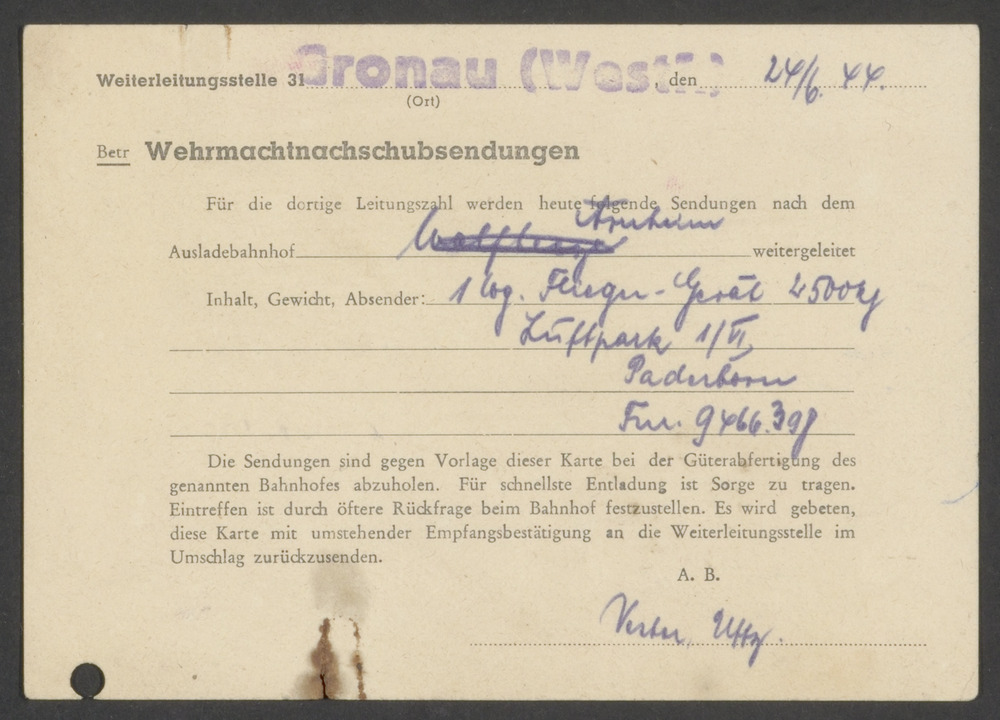 Weiterleitungsstelle 31 Gronau (Westf.), den 24/6. 44.
(Ort)
Betr Wehrmachtnachschubsendungen
Für die dortige Leitungszahl werden heute folgende Sendungen nach dem
Arnheim
Ausladebahnhof weitergeleitet
Inhalt, Gewicht, Absender: 1 Wg. Flieger-Gerät 2500 kg
Luftpark 1/VI,
Paderborn
9466.398
Die Sendungen sind gegen Vorlage dieser Karte bei der Güterabfertigung des
genannten Bahnhofes abzuholen. Für schnellste Entladung ist Sorge zu tragen.
Eintreffen ist durch öftere Rückfrage beim Bahnhof festzustellen. Es wird gebeten,
diese Karte mit umstehender Empfangsbestätigung an die Weiterleitungsstelle im
Umschlag zurückzusenden.
A. B.
Uffz.